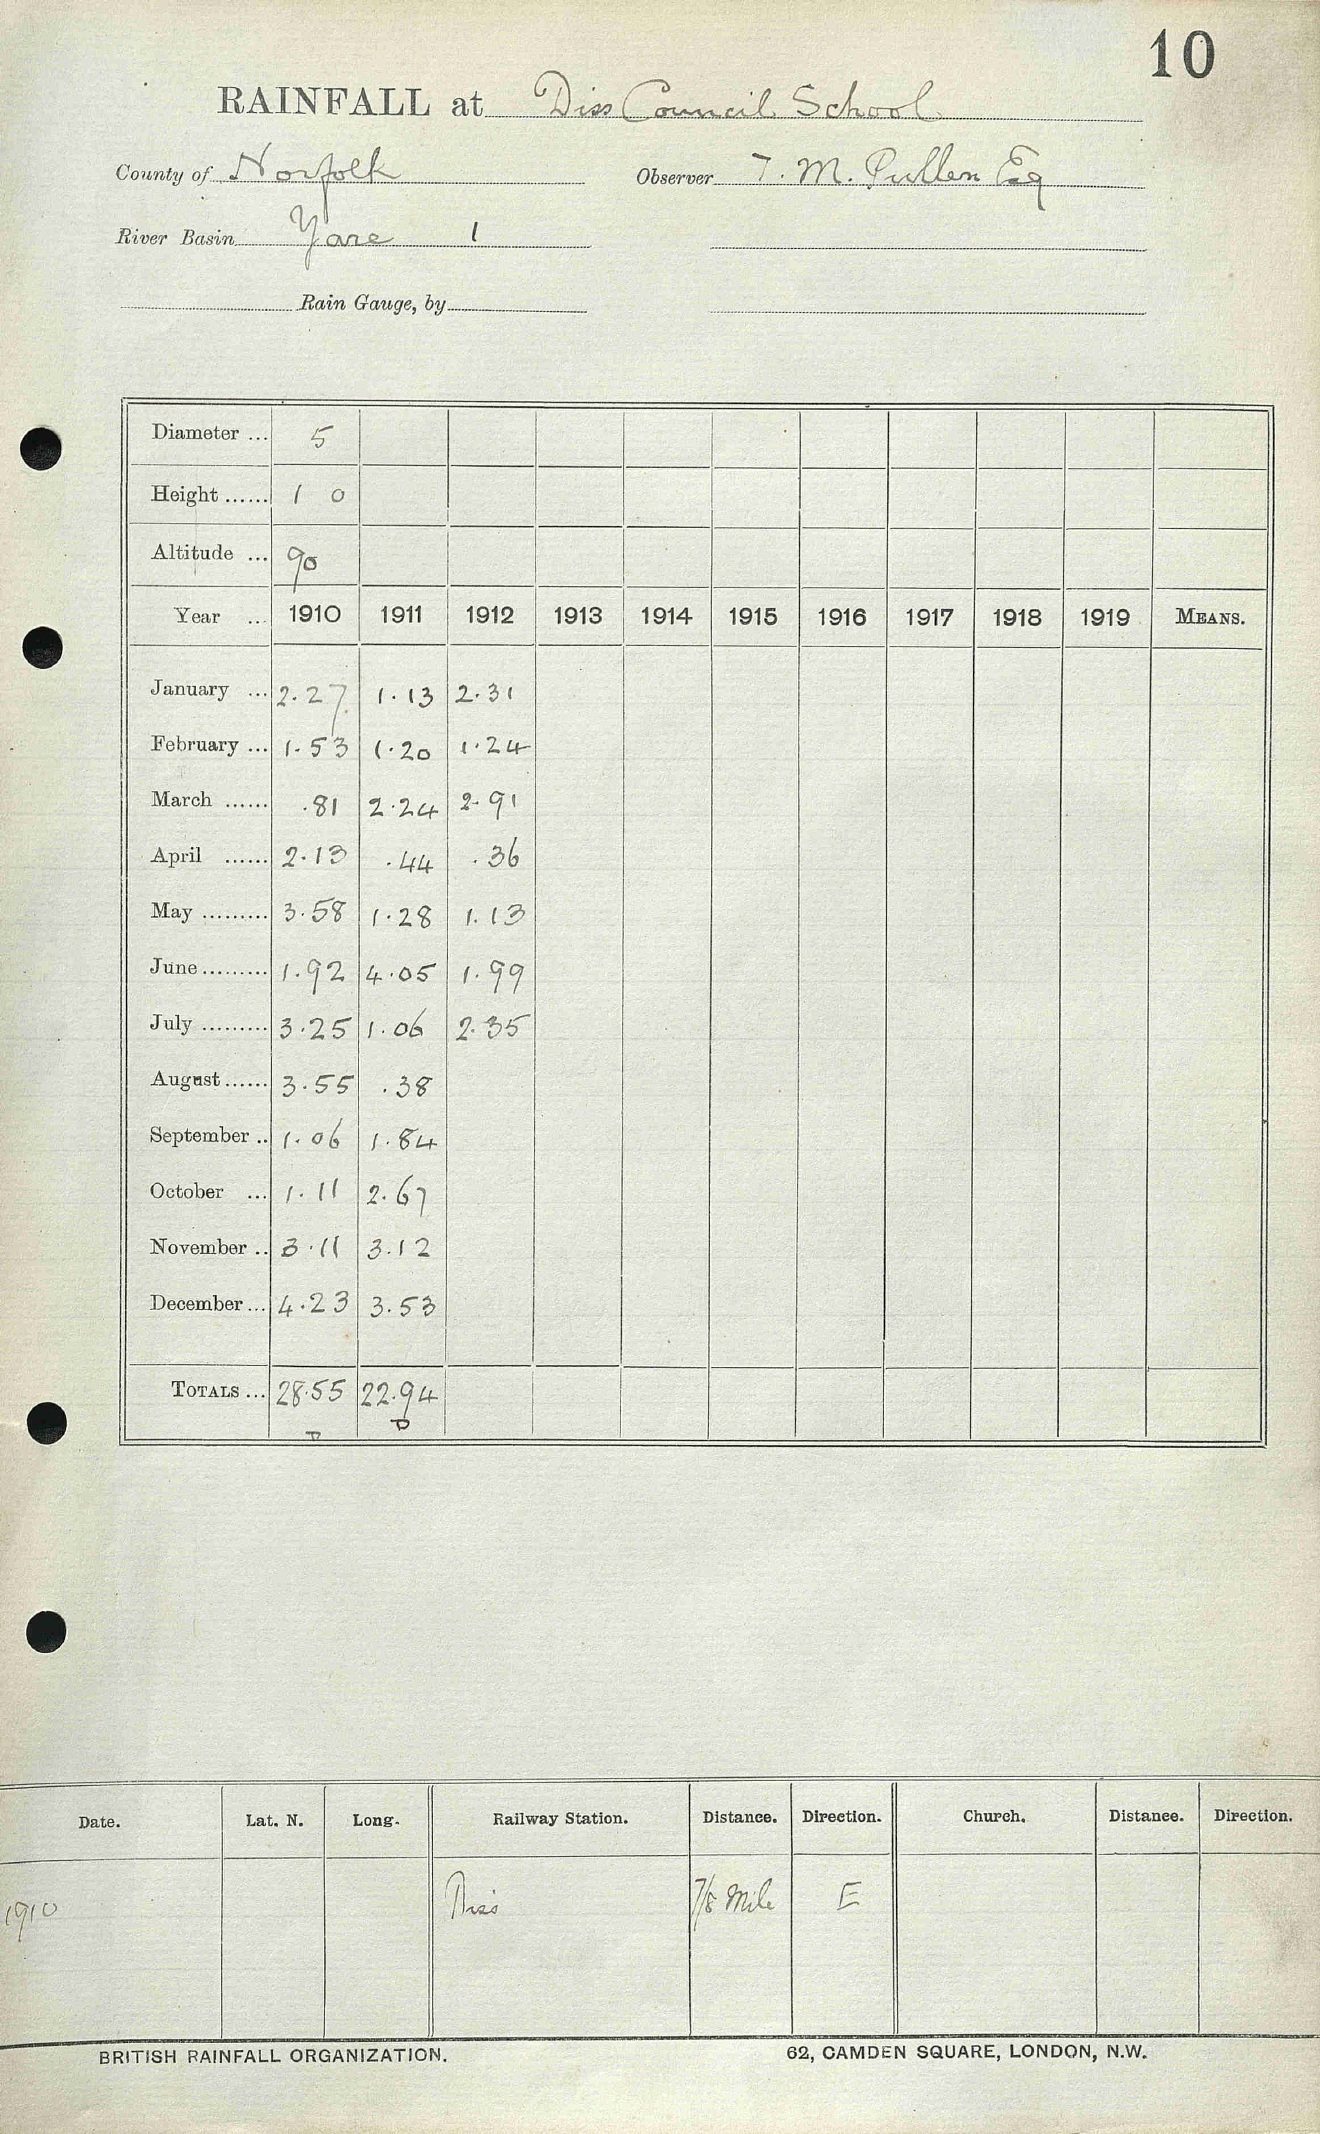 10
RAINFALL at Diss Council School
County of Norfolk Observer T. M. Pullen Esq
River Basin Yare 1
Rain Gauge, by
Diameter ... 5
Height ...... 1 0
Altitude ... 90
Year ... 1910 1911 1912 1913 1914 1915 1916 1917 1918 1919 MEANS.
January ... 2.27 1.13 2.31
February ... 1.53 1.20 1.24
March ...... .81 2.24 2.91
April ...... 2.13 .44 .36
May ......... 3.58 1.28 1.13
June ......... 1.92 4.05 1.99
July ......... 3.25 1.06 2.35
August ...... 3.55 .38
September .. 1.06 1.84
October ... 1.11 2.67
November .. 3.11 3.12
December ... 4.23 3.53
TOTALS ... 28.55 22.94
Date. Lat. N. Long. Railway Station. Distance. Direction. Church. Distance. Direction.
1910 Diss 7/8 Mile E
BRITISH RAINFALL ORGANIZATION. 62, CAMDEN SQUARE, LONDON, N.W.